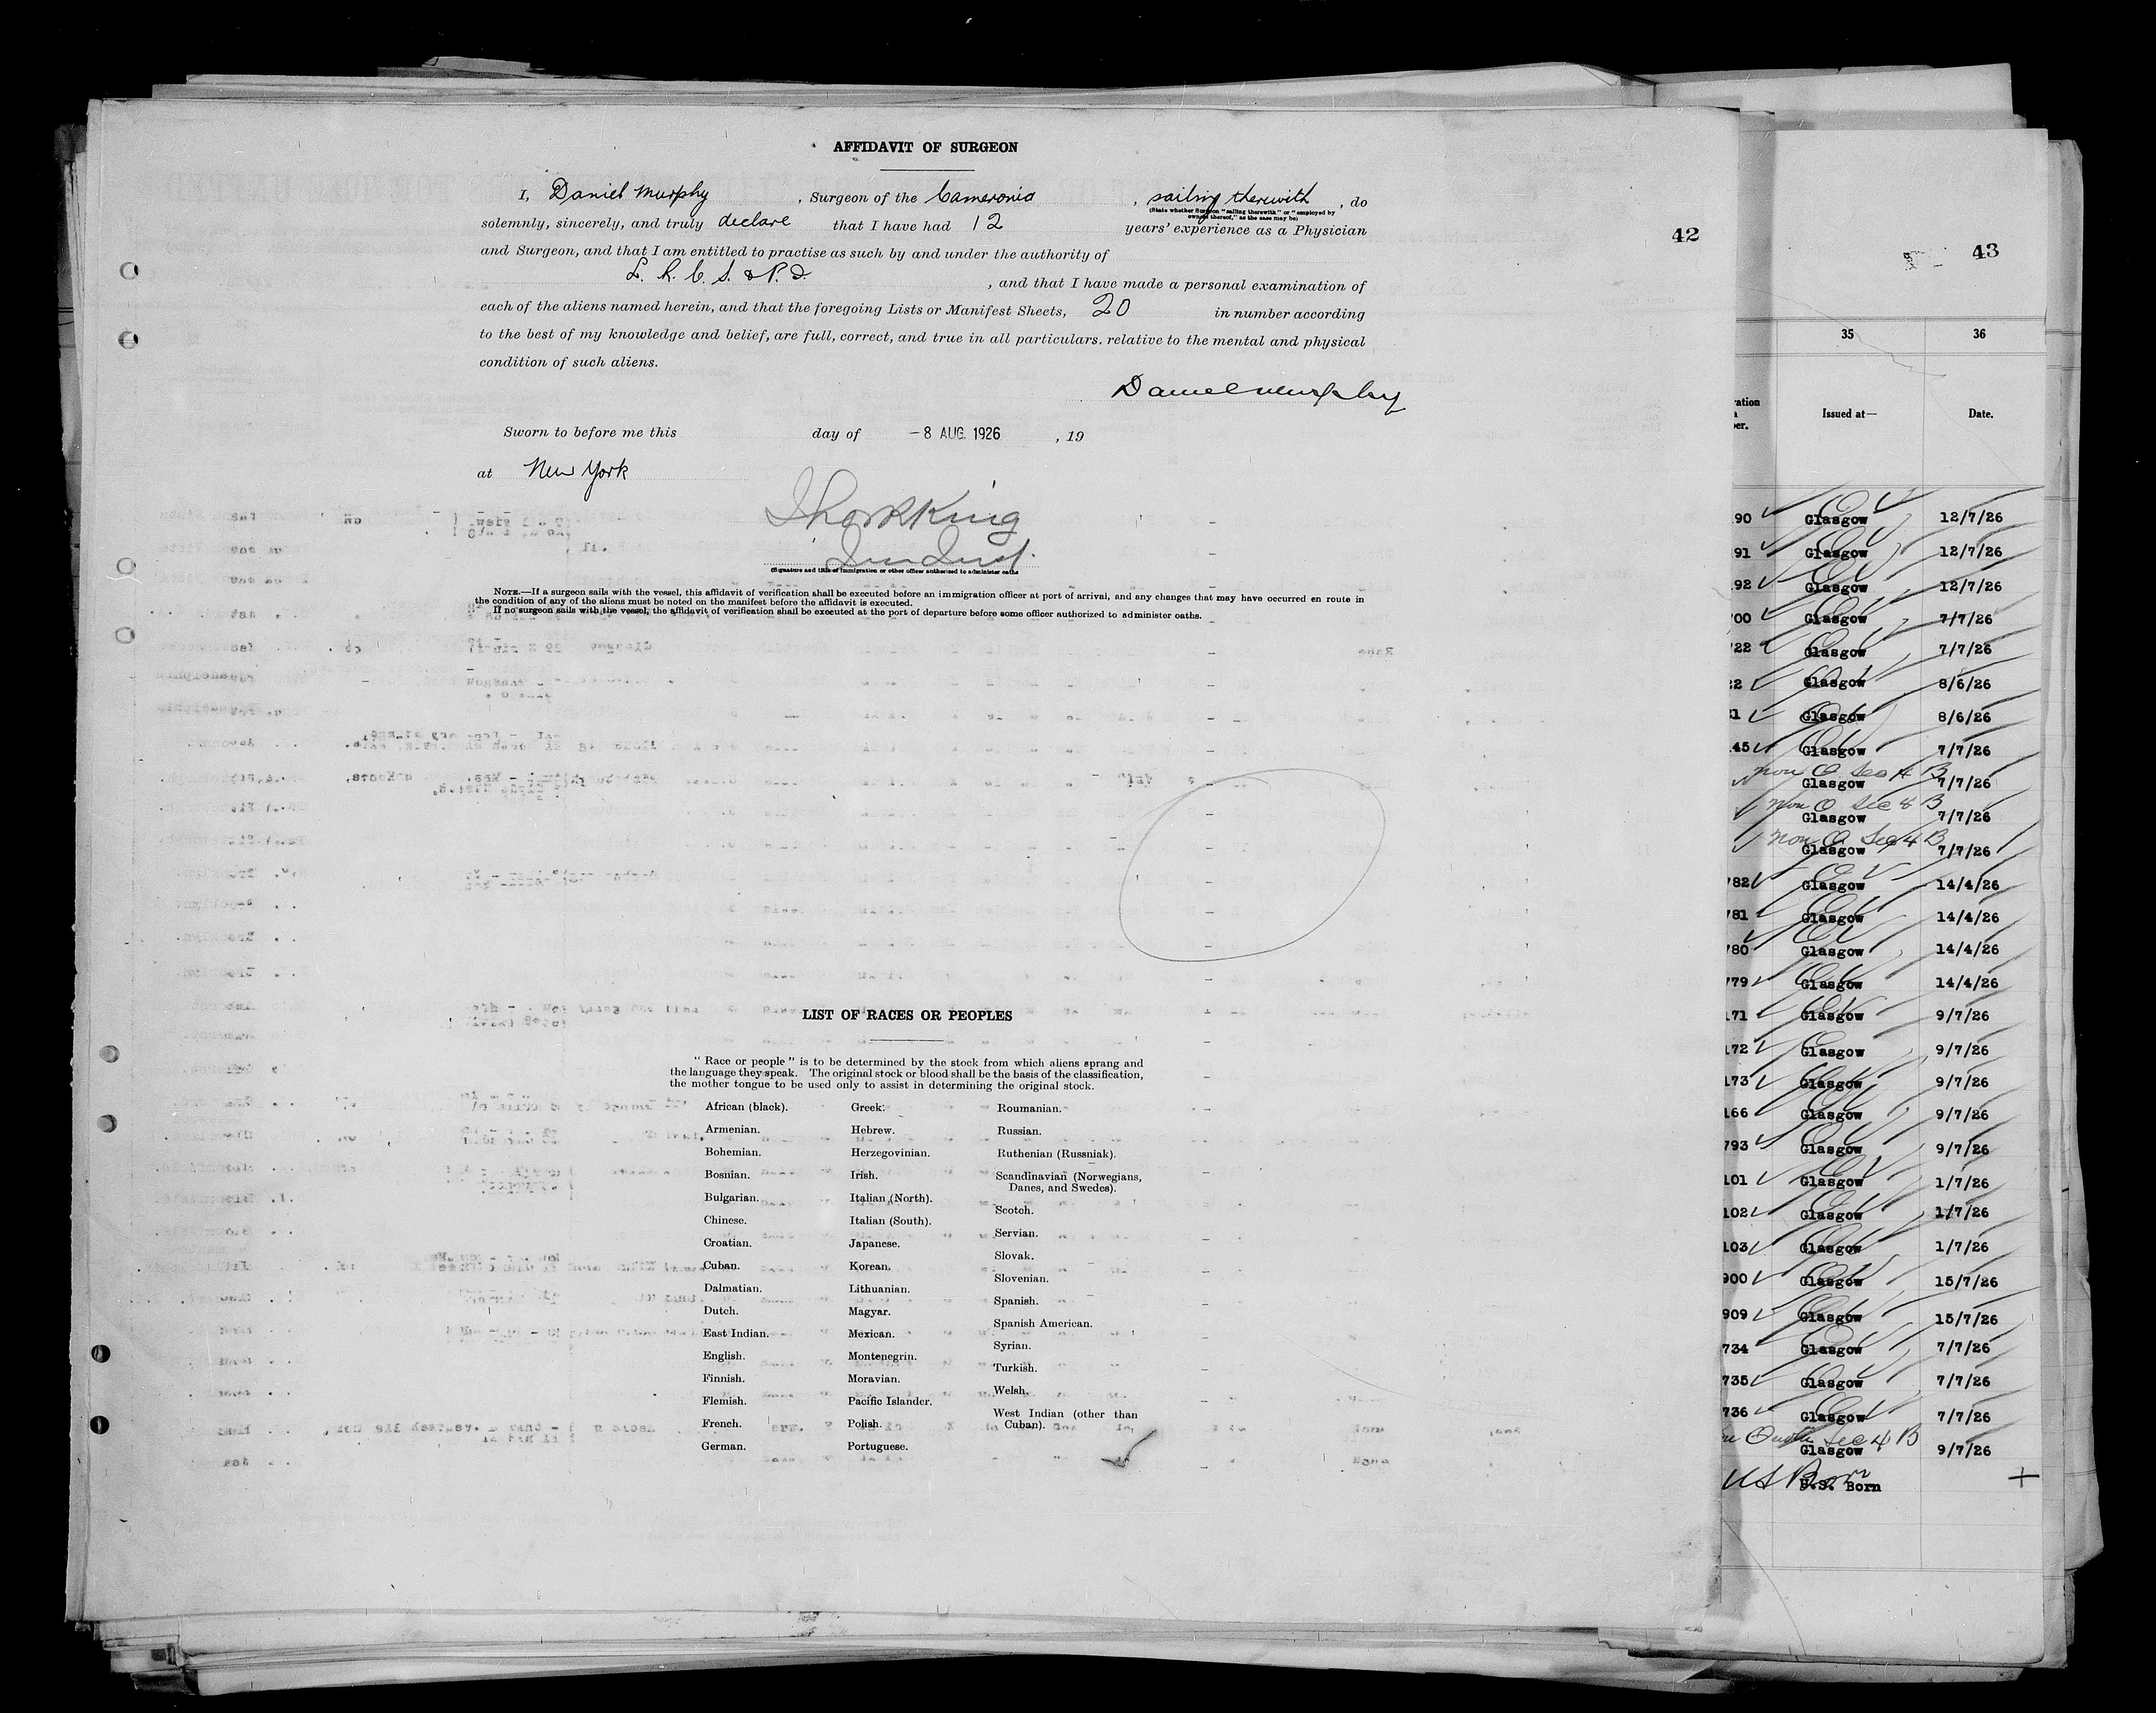 AFFIDAVIT OF SURGEON
I, Daniel Murphy, Surgeon of the Cameronia, sailing therewith, do
(State whether Surgeon "sailing therewith" or "employed by
owners thereof," as the case may be)
solemnly, sincerely, and truly declare that I have had 12 years' experience as a Physician
and Surgeon, and that I am entitled to practise as such by and under the authority of
L. R. C. S. & P. I., and that I have made a personal examination of
each of the aliens named herein, and that the foregoing Lists or Manifest Sheets, 20 in number according
to the best of my knowledge and belief, are full, correct, and true in all particulars. relative to the mental and physical
condition of such aliens.
Daniel Murphy
Sworn to before me this day of -8 AUG. 1926, 19
at New York
(Signature and title of immigration or other officer authorized to administer oaths
NOTE.—If a surgeon sails with the vessel, this affidavit of verification shall be executed before an immigration officer at port of arrival, and any changes that may have occurred en route in
the condition of any of the aliens must be noted on the manifest before the affidavit is executed.
If no surgeon sails with the vessel, the affidavit of verification shall be executed at the port of departure before some officer authorized to administer oaths.
LIST OF RACES OR PEOPLES
"Race or people" is to be determined by the stock from which aliens sprang and
the language they speak. The original stock or blood shall be the basis of the classification,
the mother tongue to be used only to assist in determining the original stock.
African (black).
Armenian.
Bohemian.
Bosnian.
Bulgarian.
Chinese.
Croatian.
Cuban.
Dalmatian.
Dutch.
East Indian.
English.
Finnish.
Flemish.
French.
German.
Greek.
Hebrew.
Herzegovinian.
Irish.
Italian (North).
Italian (South).
Japanese.
Korean.
Lithuanian.
Magyar.
Mexican.
Montenegrin.
Moravian.
Pacific Islander.
Polish.
Portuguese.
Roumanian.
Russian.
Ruthenian (Russniak).
Scandinavian (Norwegians,
Danes, and Swedes).
Scotch.
Servian.
Slovak.
Slovenian.
Spanish.
Spanish American.
Syrian.
Turkish.
Welsh.
West Indian (other than
Cuban).
42
43
35 36
Issued at— Date.
90 Glasgow 12/7/26
91 Glasgow 12/7/26
92 Glasgow 12/7/26
00 Glasgow 7/7/26
22 Glasgow 7/7/26
2 Glasgow 8/6/26
1 Glasgow 8/6/26
45 Glasgow 7/7/26
non Q Sec 4 B
Glasgow 7/7/26
non Q Sec 4 B
Glasgow 7/7/26
non Q Sec 4 B
Glasgow 7/7/26
782 Glasgow 14/4/26
781 Glasgow 14/4/26
780 Glasgow 14/4/26
779 Glasgow 14/4/26
171 Glasgow 9/7/26
172 Glasgow 9/7/26
173 Glasgow 9/7/26
166 Glasgow 9/7/26
793 Glasgow 9/7/26
101 Glasgow 1/7/26
102 Glasgow 1/7/26
103 Glasgow 1/7/26
900 Glasgow 15/7/26
909 Glasgow 15/7/26
734 Glasgow 7/7/26
735 Glasgow 7/7/26
736 Glasgow 7/7/26
Quota Sec 4 B
Glasgow 9/7/26
US Born
U.S. Born